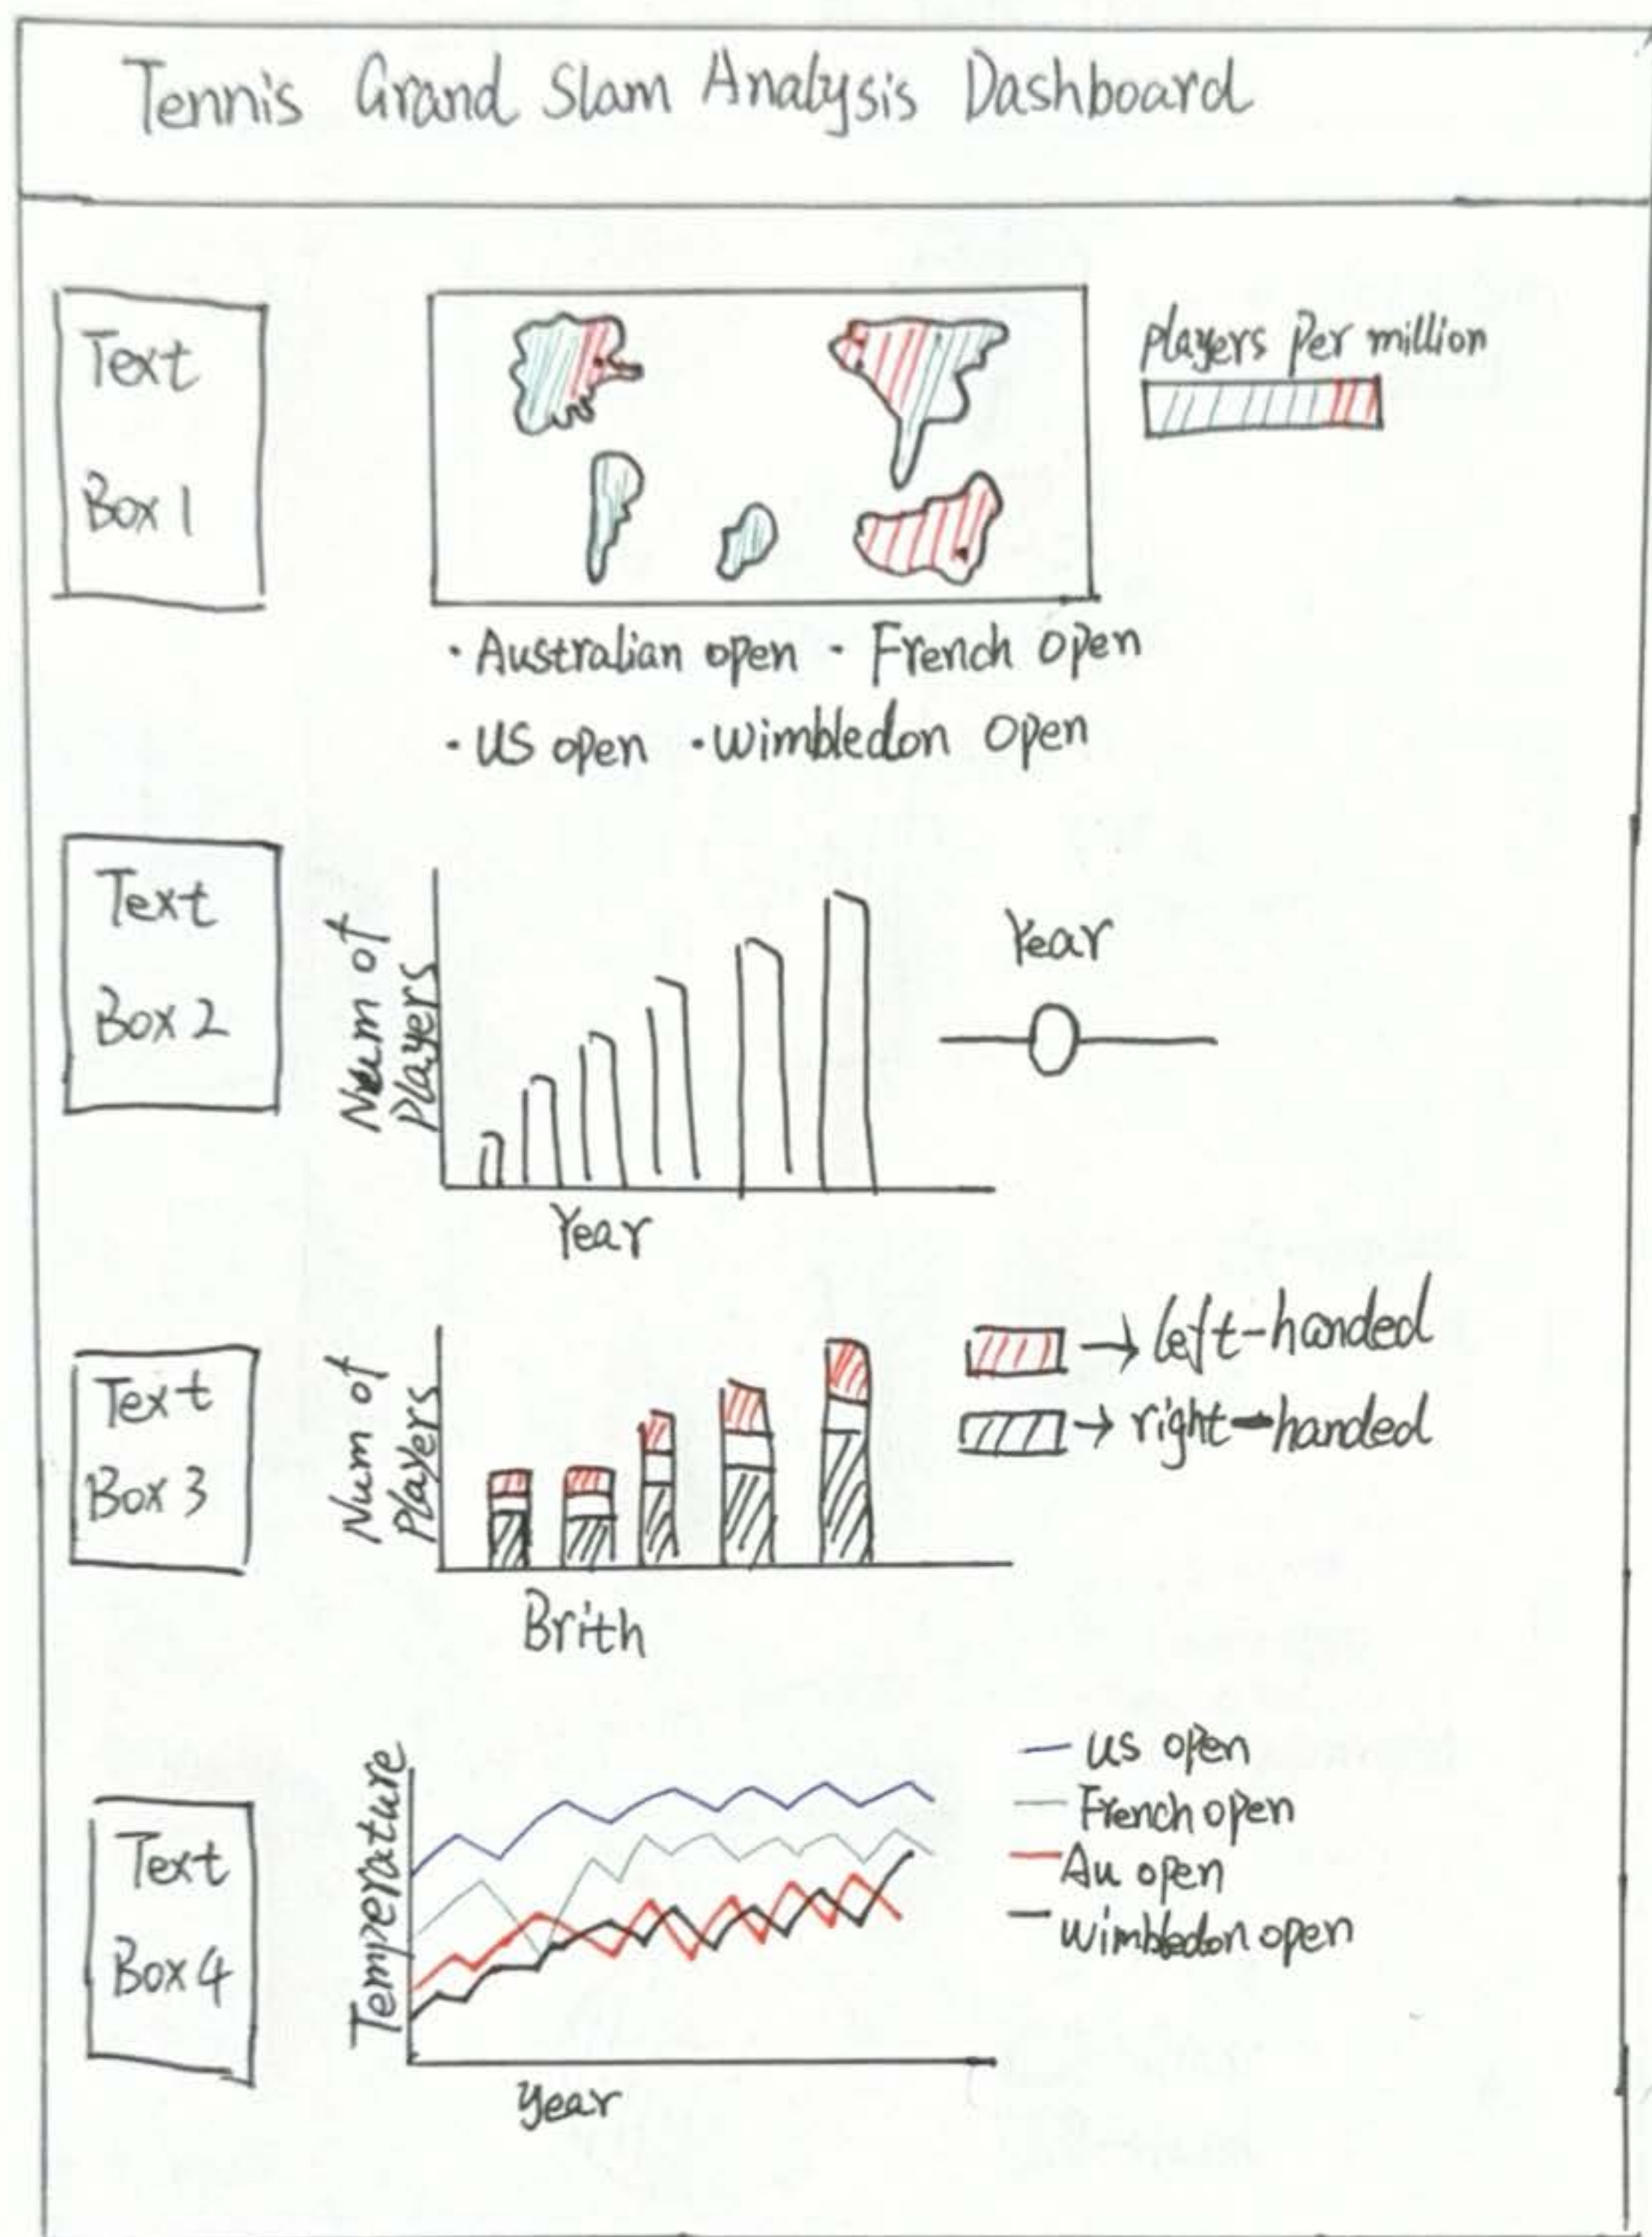 Tennis Grand Slam Analysis Dashboard
Text
Box 1
players per million
· Australian open · French open
· US open · Wimbledon open
Text
Box 2
Num of
Players
Year
Year
Text
Box 3
Num of
Players
left-handed
right-handed
Brith
Text
Box 4
Temperature
US open
French open
Au open
Wimbledon open
year